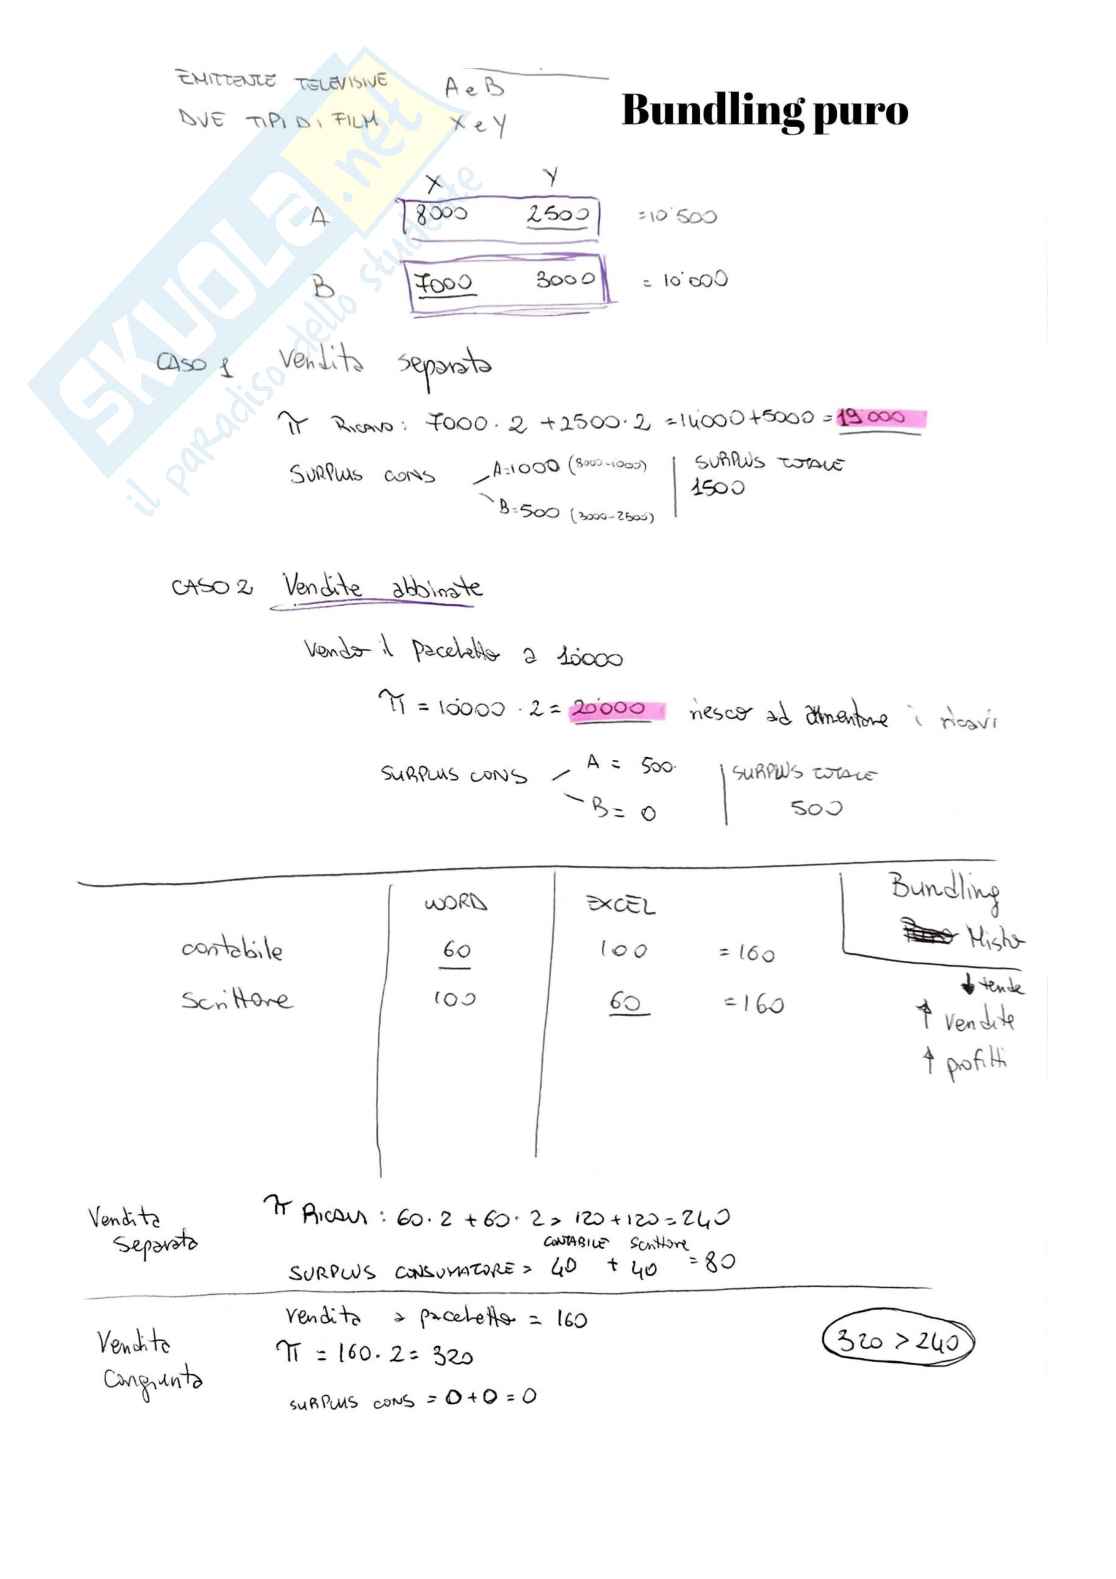 EMITTENTE TELEVISIVE A e B
DUE TIPI DI FILM X e Y
Bundling puro
X Y
A 8000 2500 = 10'500
B 7000 3000 = 10'000
CASO 1 Vendita separata
π RICAVO: 7000 · 2 + 2500 · 2 = 14'000 + 5000 = 19'000
SURPLUS CONS A=1000 (8000-1000)
B=500 (3000-2500)
SURPLUS TOTALE
1500
CASO 2 Vendite abbinate
Vendo il pacchetto a 10'000
π = 10'000 · 2 = 20'000 riesco ad aumentare i ricavi
SURPLUS CONS A = 500
B = 0
SURPLUS TOTALE
500
WORD EXCEL
contabile 60 100 = 160
scrittore 100 60 = 160
Bundling
Misto
↓ tende
↑ vendite
↑ profitti
Vendita
separata
π RICAVI : 60 · 2 + 60 · 2 = 120 + 120 = 240
CONTABILE scrittore
SURPLUS CONSUMATORE = 40 + 40 = 80
Vendita
congiunta
vendita a pacchetto = 160
π = 160 · 2 = 320
SURPLUS CONS = 0 + 0 = 0
320 > 240
SKUOLA.net
il paradiso dello studente